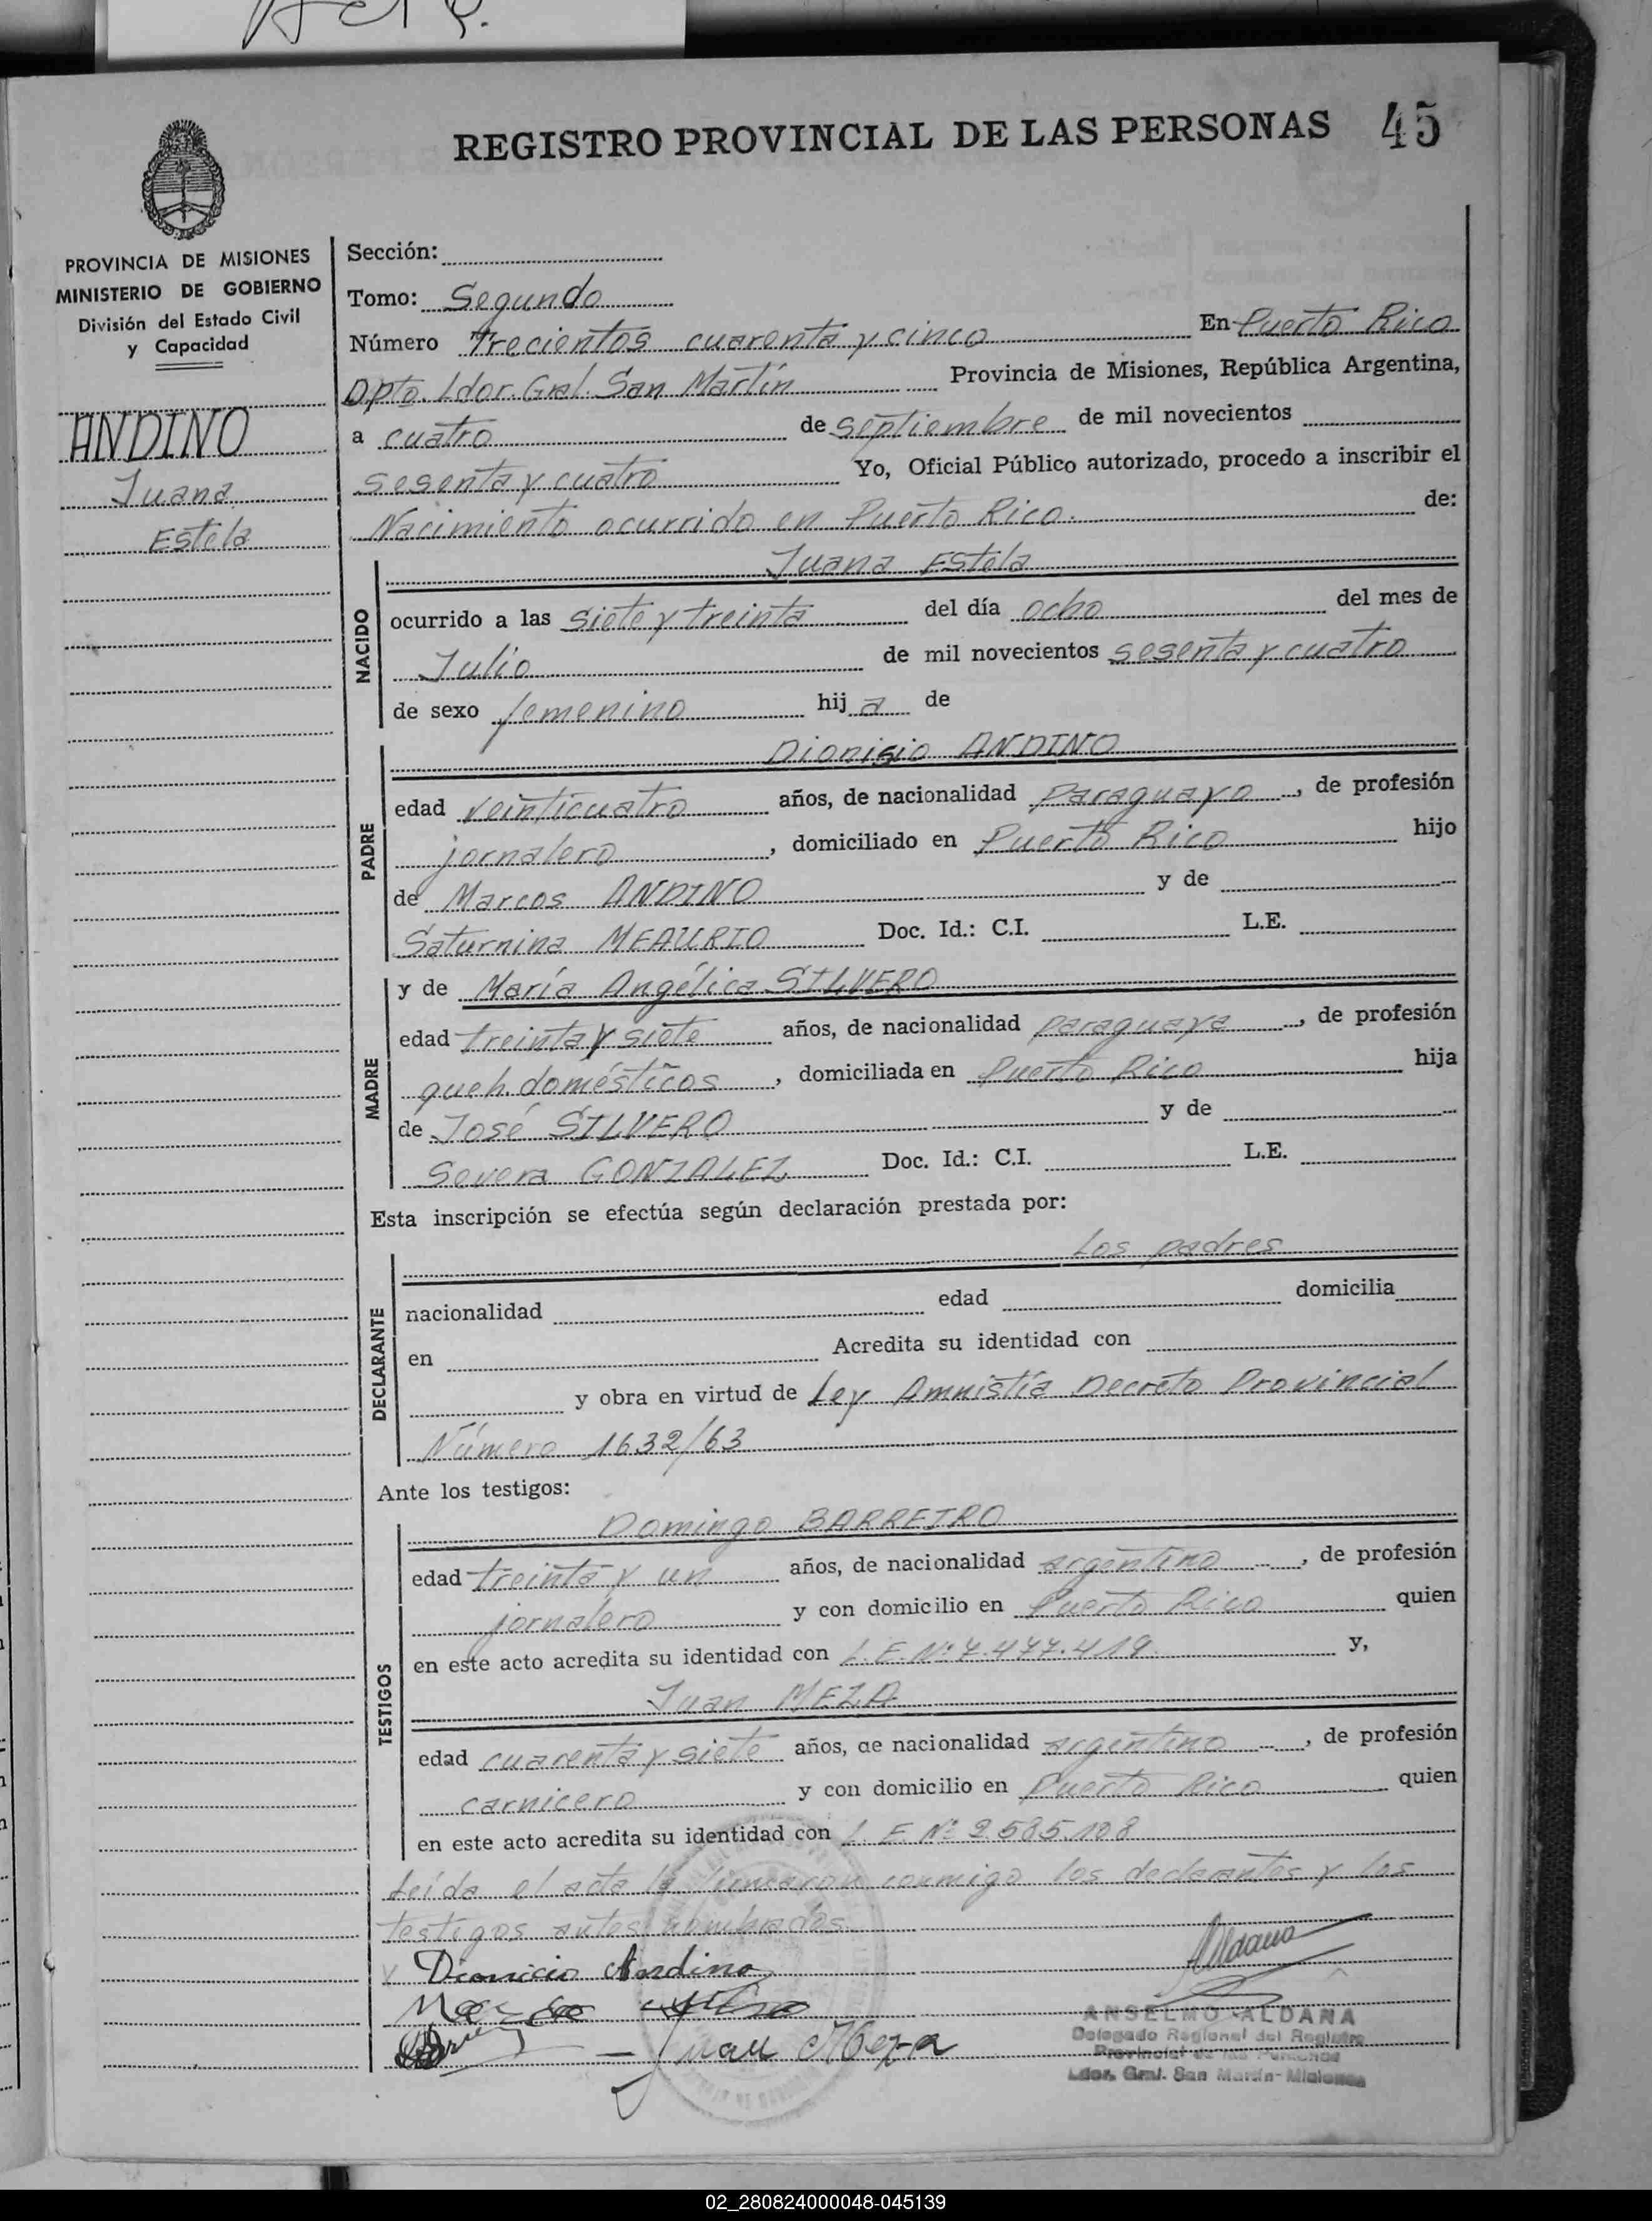 REGISTRO PROVINCIAL DE LAS PERSONAS 45
PROVINCIA DE MISIONES
MINISTERIO DE GOBIERNO
División del Estado Civil
y Capacidad
ANDINO
Juana
Estela
Sección:
Tomo: Segundo
Número Trecientos cuarenta y cinco En Puerto Rico
Dpto. Ldor. Gral. San Martín Provincia de Misiones, República Argentina,
a cuatro de septiembre de mil novecientos
sesenta y cuatro Yo, Oficial Público autorizado, procedo a inscribir el
Nacimiento ocurrido en Puerto Rico. de:
Juana Estela
NACIDO
ocurrido a las siete y treinta del día ocho del mes de
Julio de mil novecientos sesenta y cuatro
de sexo femenino hija de
Dionisio ANDINO
PADRE
edad veinticuatro años, de nacionalidad Paraguayo, de profesión
jornalero, domiciliado en Puerto Rico hijo
de Marcos ANDINO y de
Saturnina MEAURIO Doc. Id.: C.I. L.E.
y de María Angélica SILVERO
MADRE
edad treinta y siete años, de nacionalidad paraguaya, de profesión
queh. domésticos, domiciliada en Puerto Rico hija
de José SILVERO y de
Severa GONZALEZ Doc. Id.: C.I. L.E.
Esta inscripción se efectúa según declaración prestada por:
Los padres
DECLARANTE
nacionalidad edad domicilia
en Acredita su identidad con
y obra en virtud de Ley Amnistía Decreto Provincial
Número 1632/63
Ante los testigos:
Domingo BARREIRO
TESTIGOS
edad treinta y un años, de nacionalidad argentino, de profesión
jornalero y con domicilio en Puerto Rico quien
en este acto acredita su identidad con L.E. Nº 7.477.419. y,
Juan MEZA
edad cuarenta y siete años, de nacionalidad argentino, de profesión
carnicero y con domicilio en Puerto Rico quien
en este acto acredita su identidad con L.E. Nº 2.585.108
Leída el acta la firmaron conmigo los declarantes y los
testigos antes nombrados
Dionicio Andino
Aldana
Juan Meza
ANSELMO ALDANA
Delegado Regional del Registro
Provincial de las Personas
Ldor. Gral. San Martín - Misiones
02_280824000048-045139